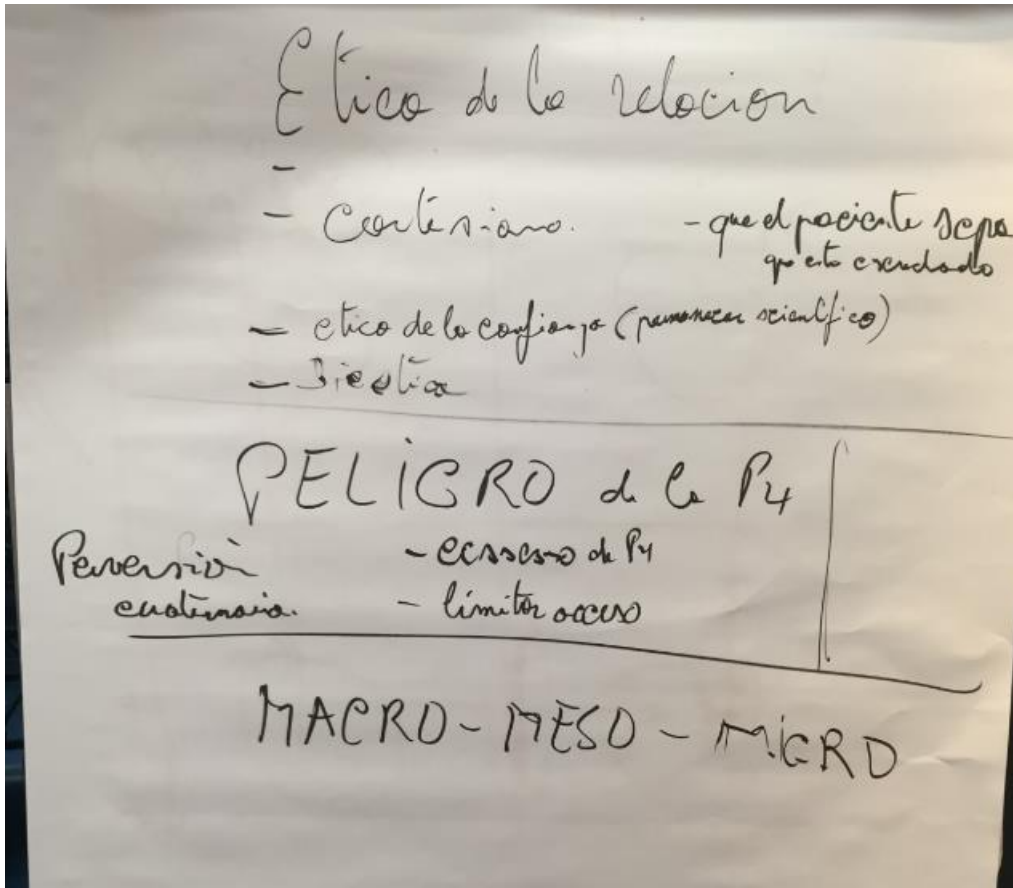 Etica de la relacion
-
- Cartesiano.
- que el paciente sepa
que esta escuchado
- etica de la confianza (permanecer scientifico)
- Bioetica
PELIGRO de la P4
Perversión
cuaternaria.
- ecssesso de P4
- límitar acceso
MACRO - MESO - MICRO